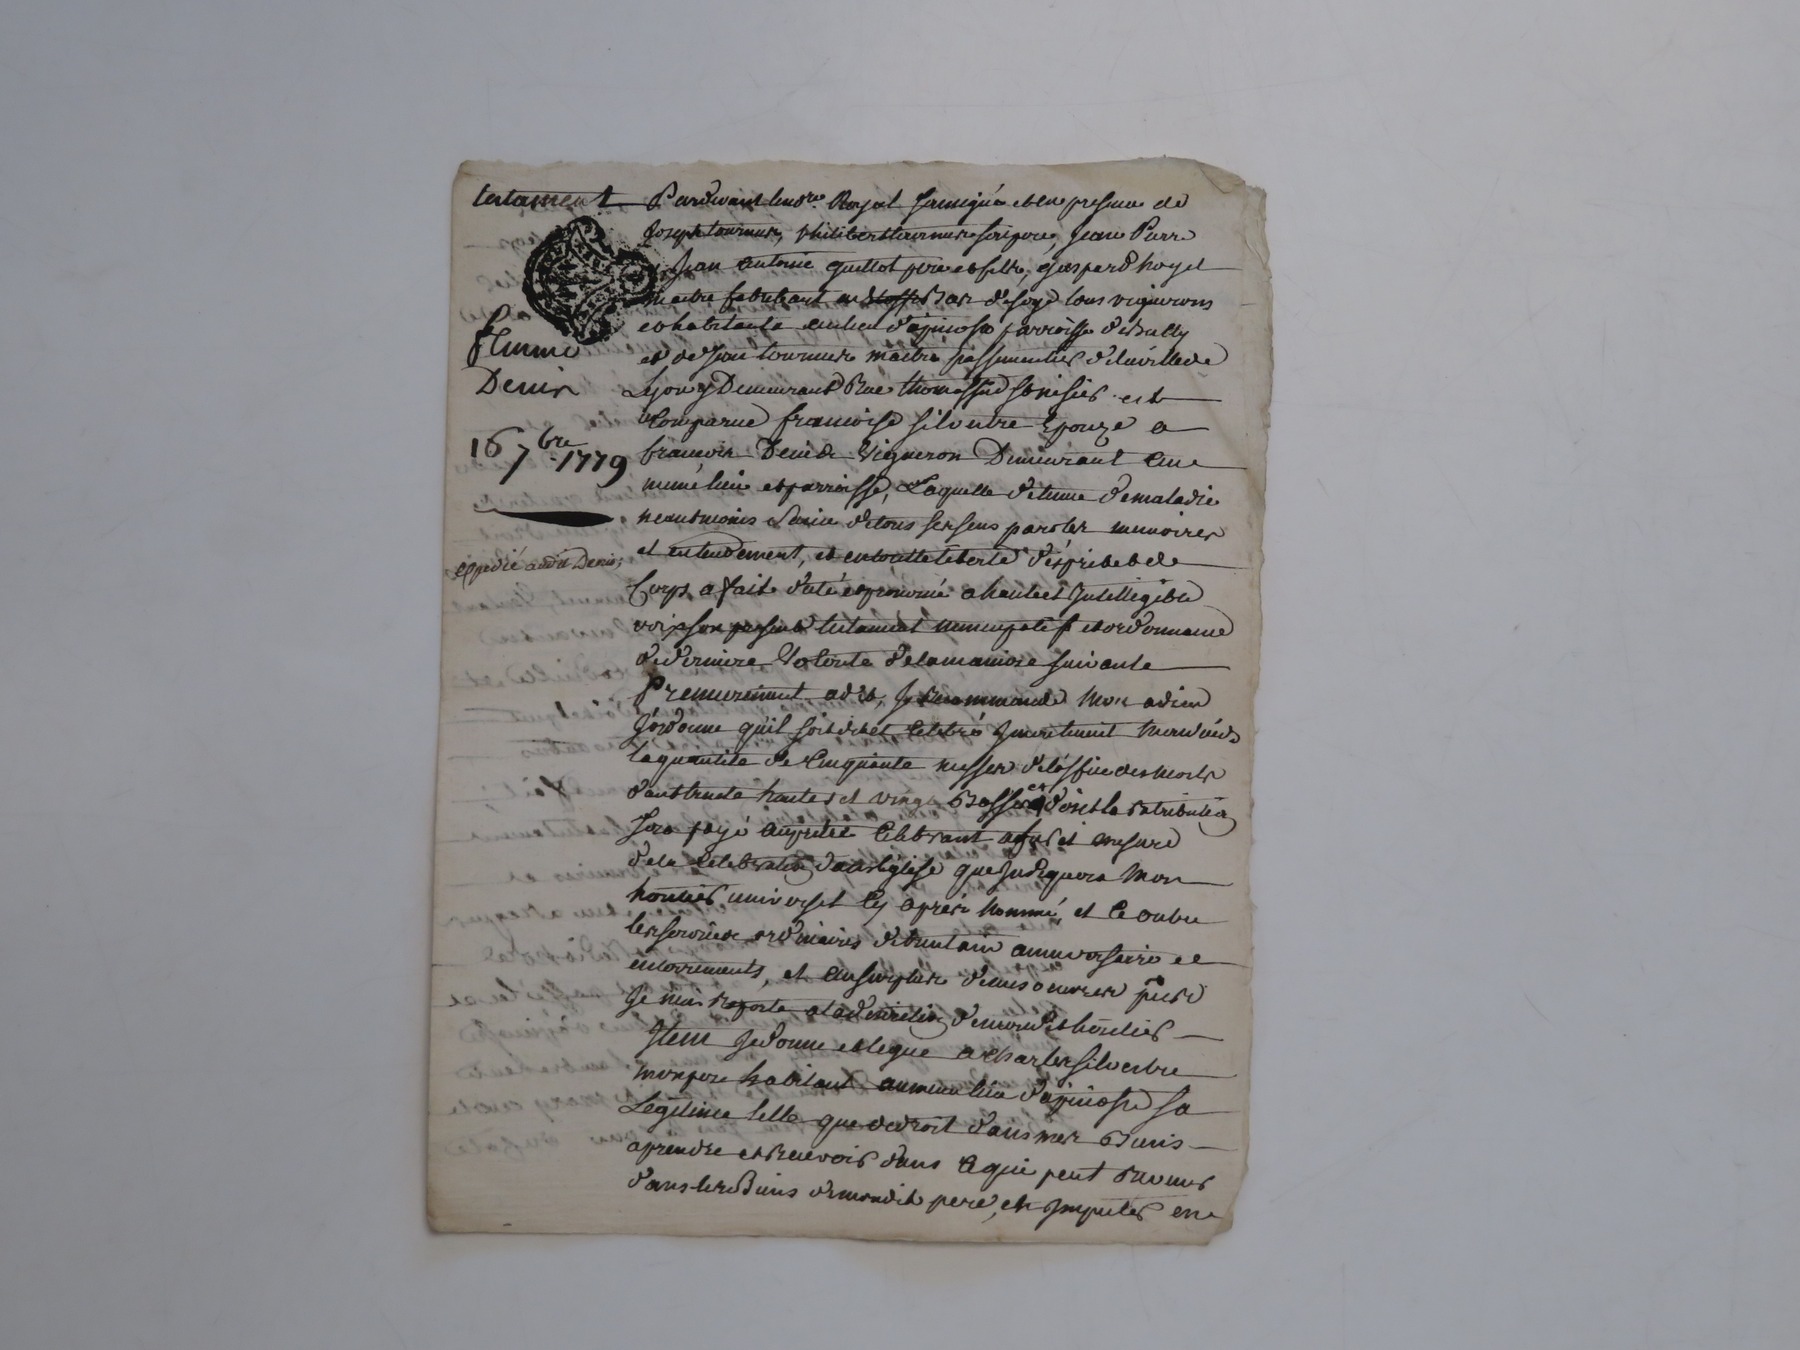 testament
femme
Denis
16 7bre 1779
expedié audit Denis,
Pardevant le nore. Royal soussigné et en presence de
Joseph tournus, philibert tournus son pere, Jean Pierre
Jean antoine guillot pere et fils, gaspard hoyet
maitre fabricant en Bas de soye tous vignerons
et habitants au lieu d'apinost parroisse de Bully
et de Jean tournus maitre passementier de la ville de
Lyon y Demeurant Rue thomassin est
Comparue francoise silvestre Epouze a
francois Denis Vigneron Demeurant au
meme lieu et parroisse, Laquelle detenue de maladie
neantmoins saine de tous ses sens paroles memoires
et entendement, et en toutte liberté d'esprit et de
Corps a fait dicté et prononcé a haute et Intelligible
voix son present testament nuncupatif et ordonnance
de derniere Volonté de la maniere suivante
Premierement a dit, Je Recommande Mon a dieu
J'ordonne qu'il soit dit et Celebré
la quantité de Cinquante messes de l'office des morts
dont trente hautes et vingt Basses et dont la Retribution
sera payé au prêtre Celebrant a fur et mesure
de la Celebration dans l'église que Indiquera Mon
heritier universel Cy après Nommé, et Ce outre
les services ordinaires de trentain anniversaire et
enterrements, et au surplus de mes oeuvres pies
Je m'en Raporte a la devotion de mondit heritier
Item Je donne et legue a charles silvestre
mon pere habitant au meme lieu d'apinost sa
Legitime telle que de droit dans mes Biens
a prendre et Recevoir dans Ce qui peut Revenir
dans les Biens de mondit pere, et Imputer en